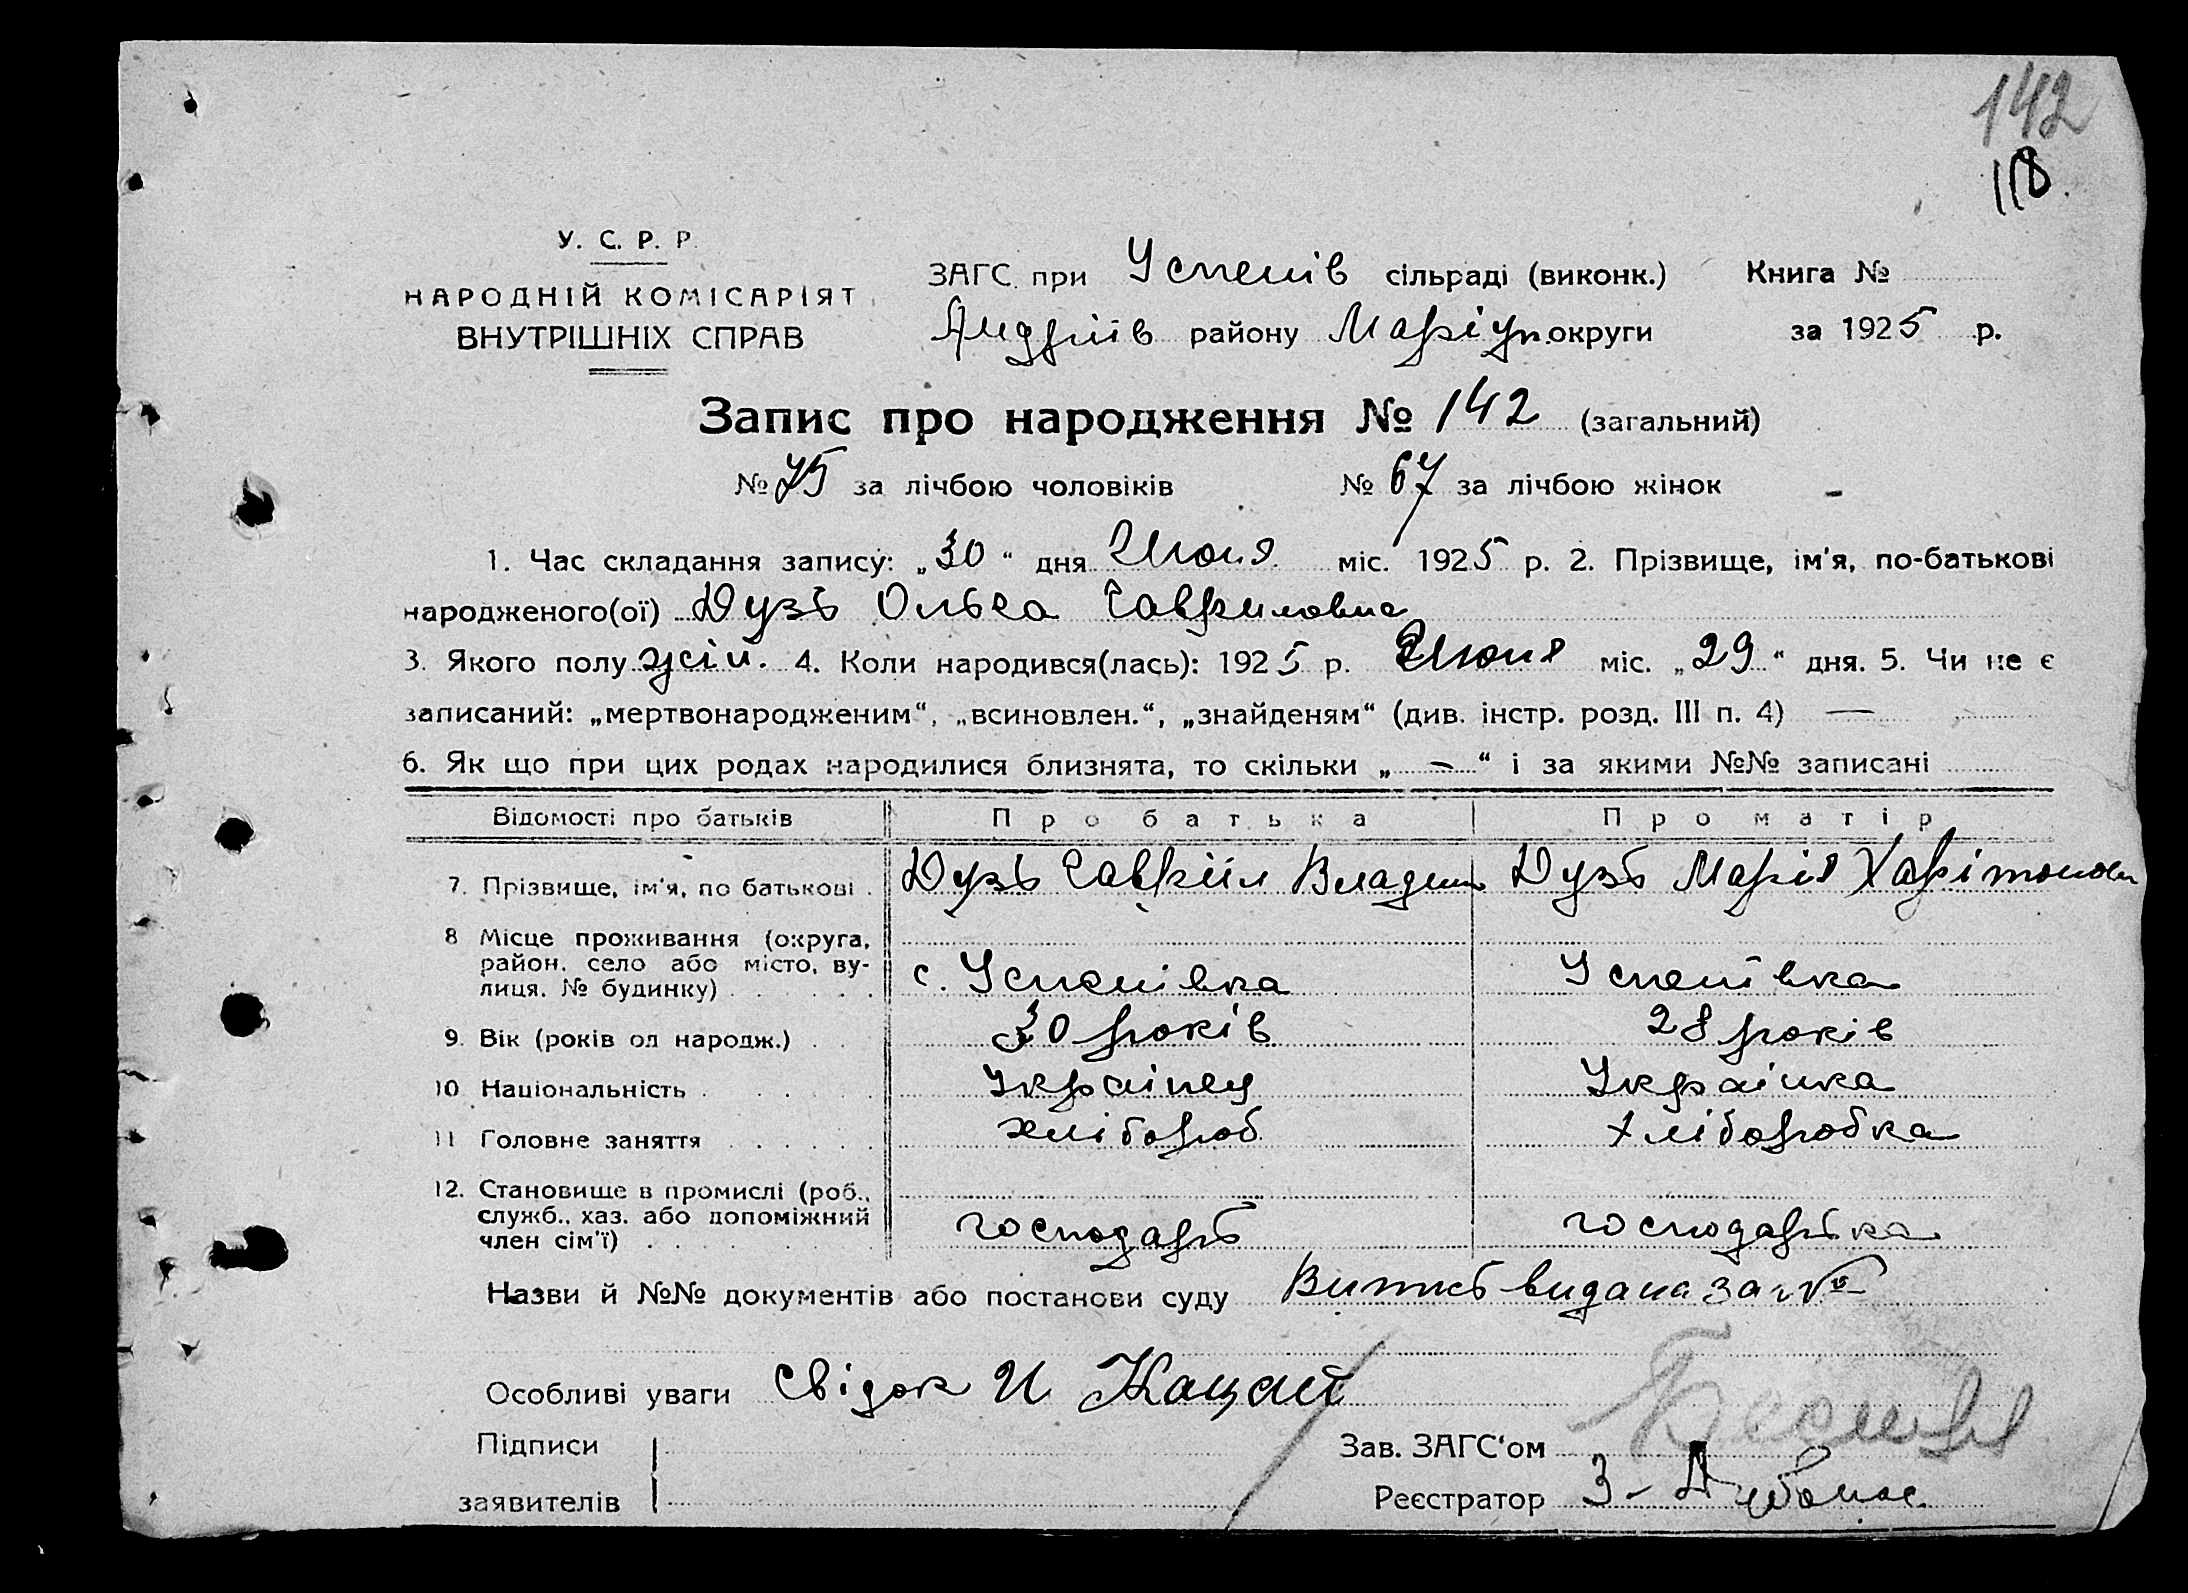 142
118.
У. С. Р. Р.
НАРОДНІЙ КОМІСАРІЯТ
ВНУТРІШНІХ СПРАВ
ЗАГС. при Успенів сільраді (виконк.) Книга №
Андріїв району Маріуп. округи за 1925 р.
Запис про народження № 142 (загальний)
№ 75 за лічбою чоловіків № 67 за лічбою жінок
1. Час складання запису: „30“ дня Июня міс. 1925 р. 2. Прізвище, ім'я, по-батькові
народженого(ої) Дузь Ольга Гавриловна
3. Якого полу жін. 4. Коли народився(лась): 1925 р. Июня міс. „29“ дня. 5. Чи не є
записаний: „мертвонародженим“, „всиновлен.“, „знайденям“ (див. інстр. розд. III п. 4) —
6. Як що при цих родах народилися близнята, то скільки „ — “ і за якими №№ записані
Відомості про батьків Про батька Про матір
7. Прізвище, ім'я, по батькові . Дузь Гавриїл Владим Дузь Марія Харітонов
8 Місце проживання (округа,
район, село або місто, ву-
лиця, № будинку) . . . . . с. Успенівка Успенівка
9. Вік (років од народж.) . . 30 років 28 років
10 Національність . . . . Українец Українка
11 Головне заняття . . . . хлібороб хліборобка
12. Становище в промислі (роб.,
служб., хаз. або допоміжний
член сім'ї) . . . . . господарь господарька
Назви й №№ документів або постанови суду Випись видана за №
Особливі уваги Свідок И Кацай
Підписи
заявителів
Зав. ЗАГС'ом
Реєстратор З-